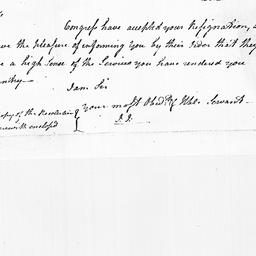 Congress have accepted your Resignation,
the Pleasure of informing you by their Order that they
a high Sense of the Services you have rendered you
I am Sir
your most Obedt. & Hble. Servant
J. J.
Copy of the Resolution
enclosed